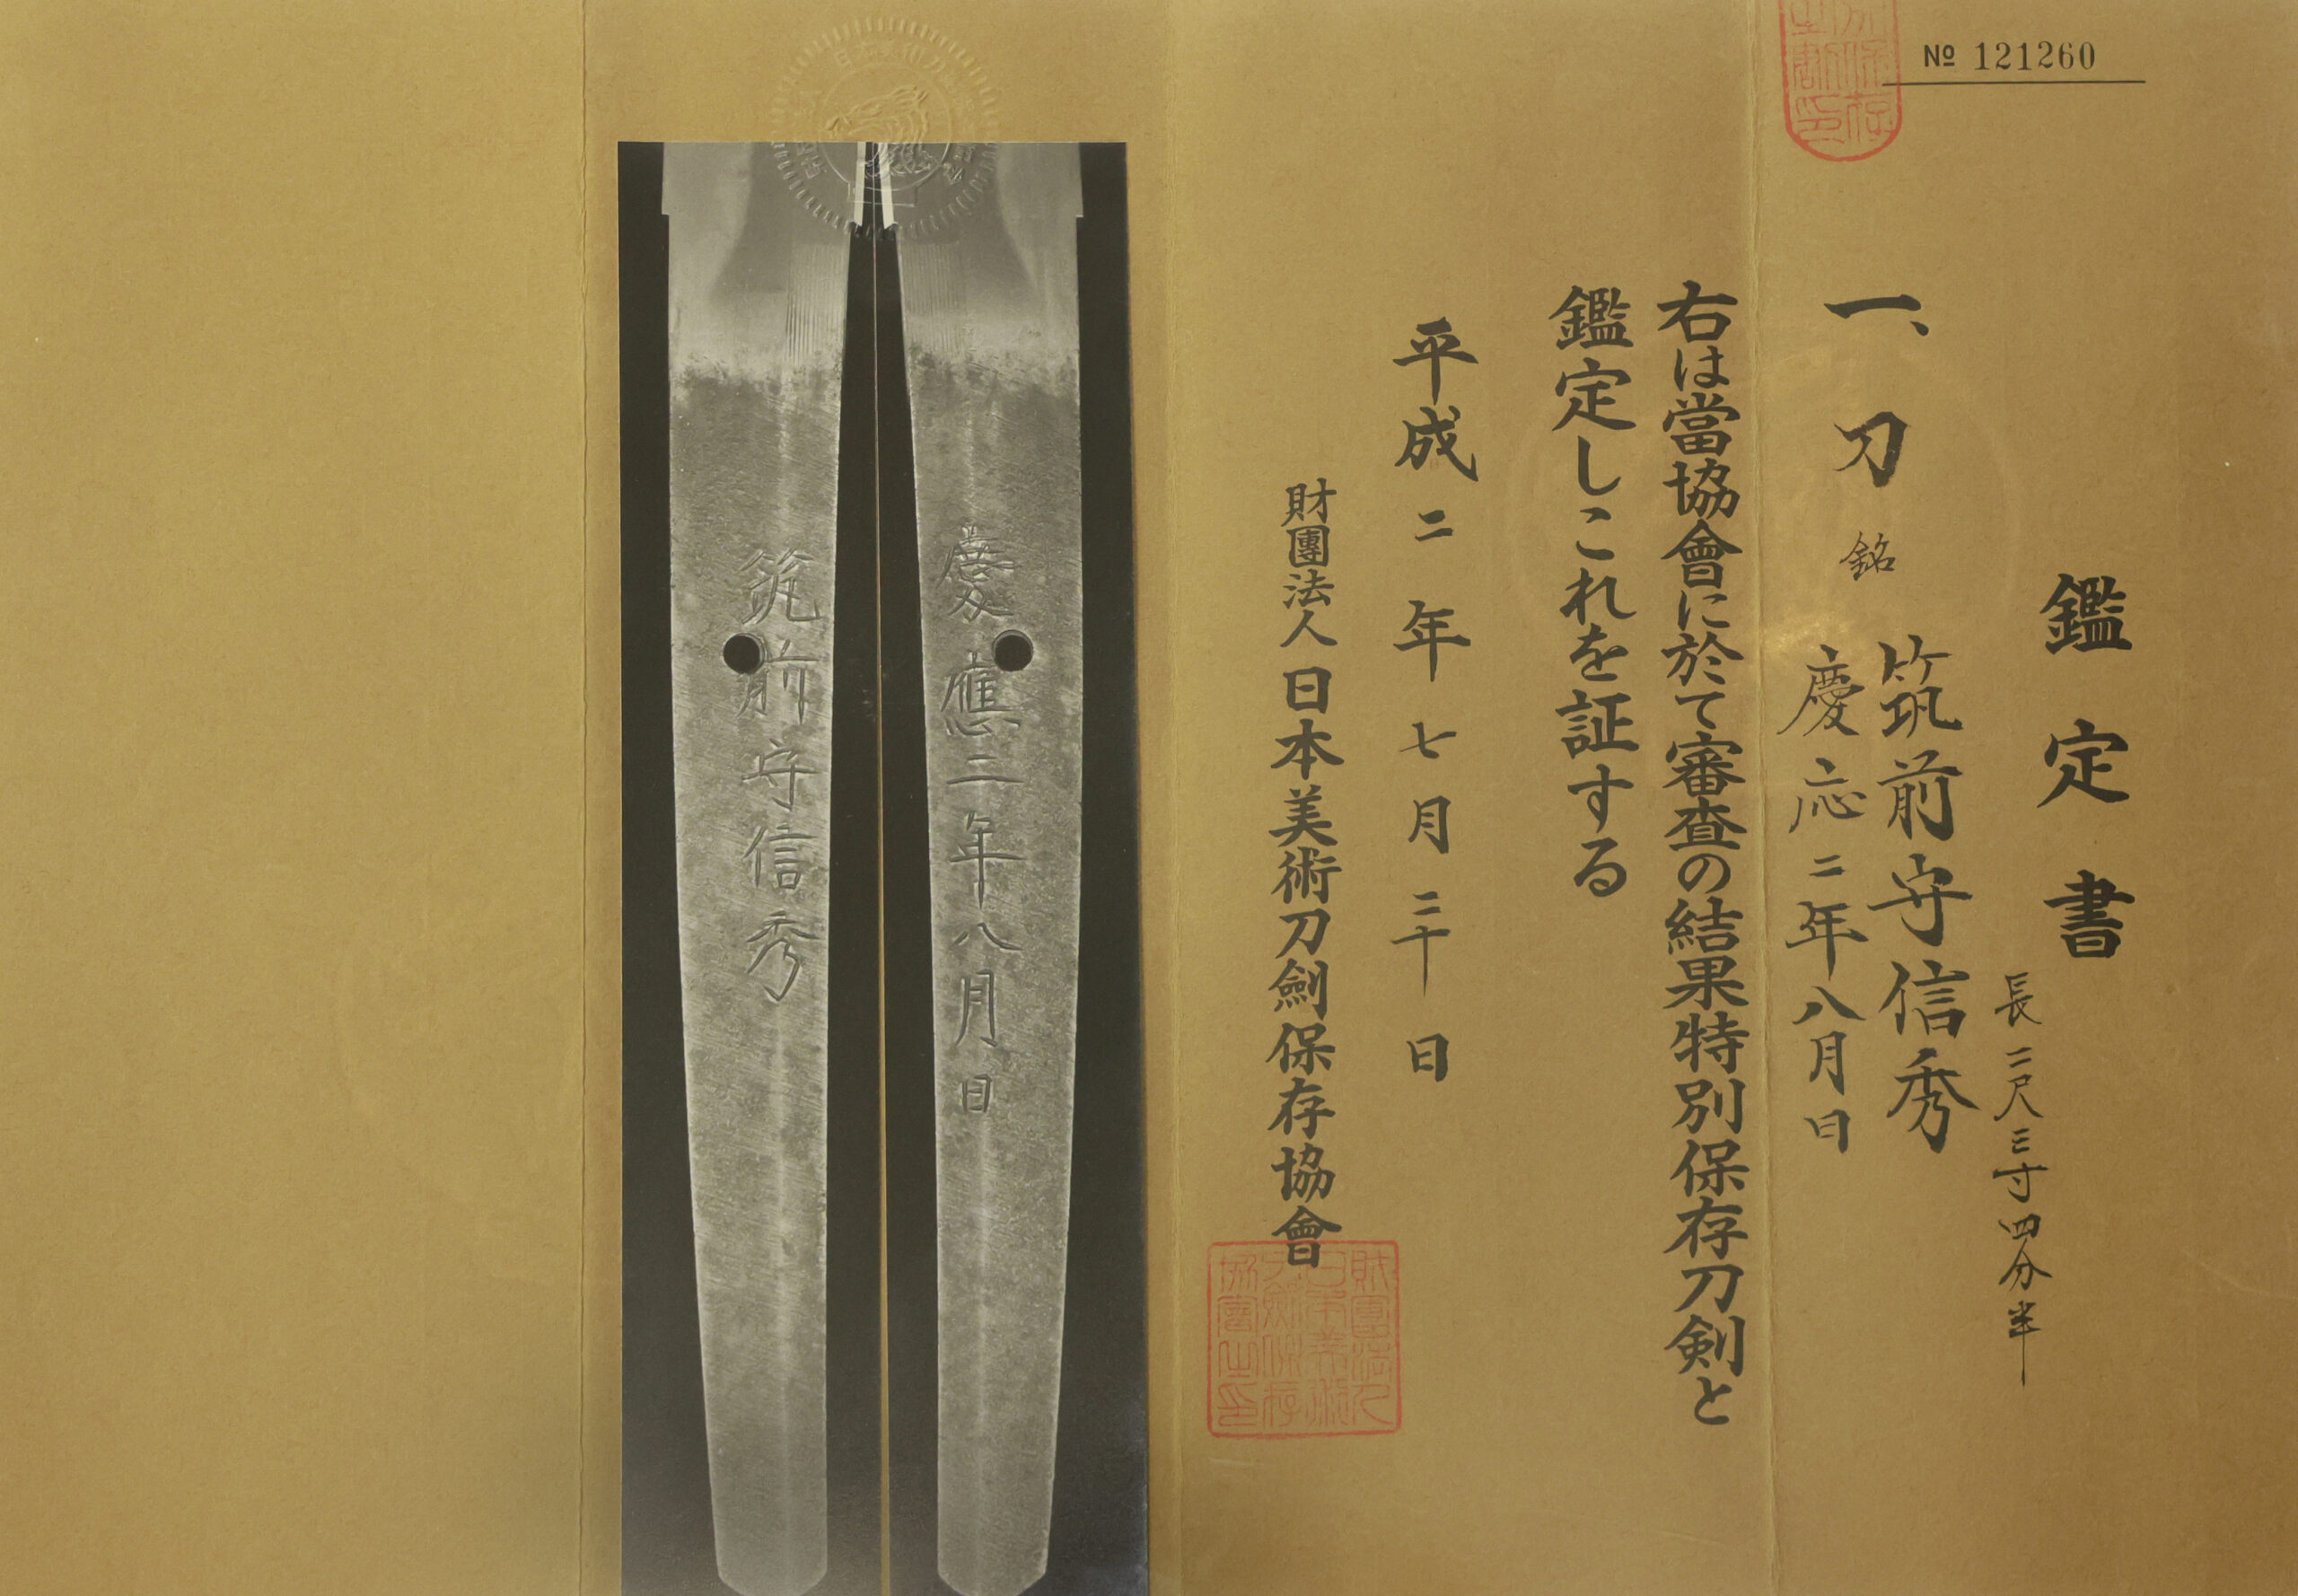 № 121260
鑑定書
長二尺三寸四分半
一、刀 銘 筑前守信秀
慶応二年八月日
右は當協會に於て審査の結果特別保存刀剣と
鑑定しこれを証する
平成二年七月三十日
財團法人日本美術刀劍保存協會
財團法人日本美術刀剣保存協會之印
慶應二年八月日
筑前守信秀